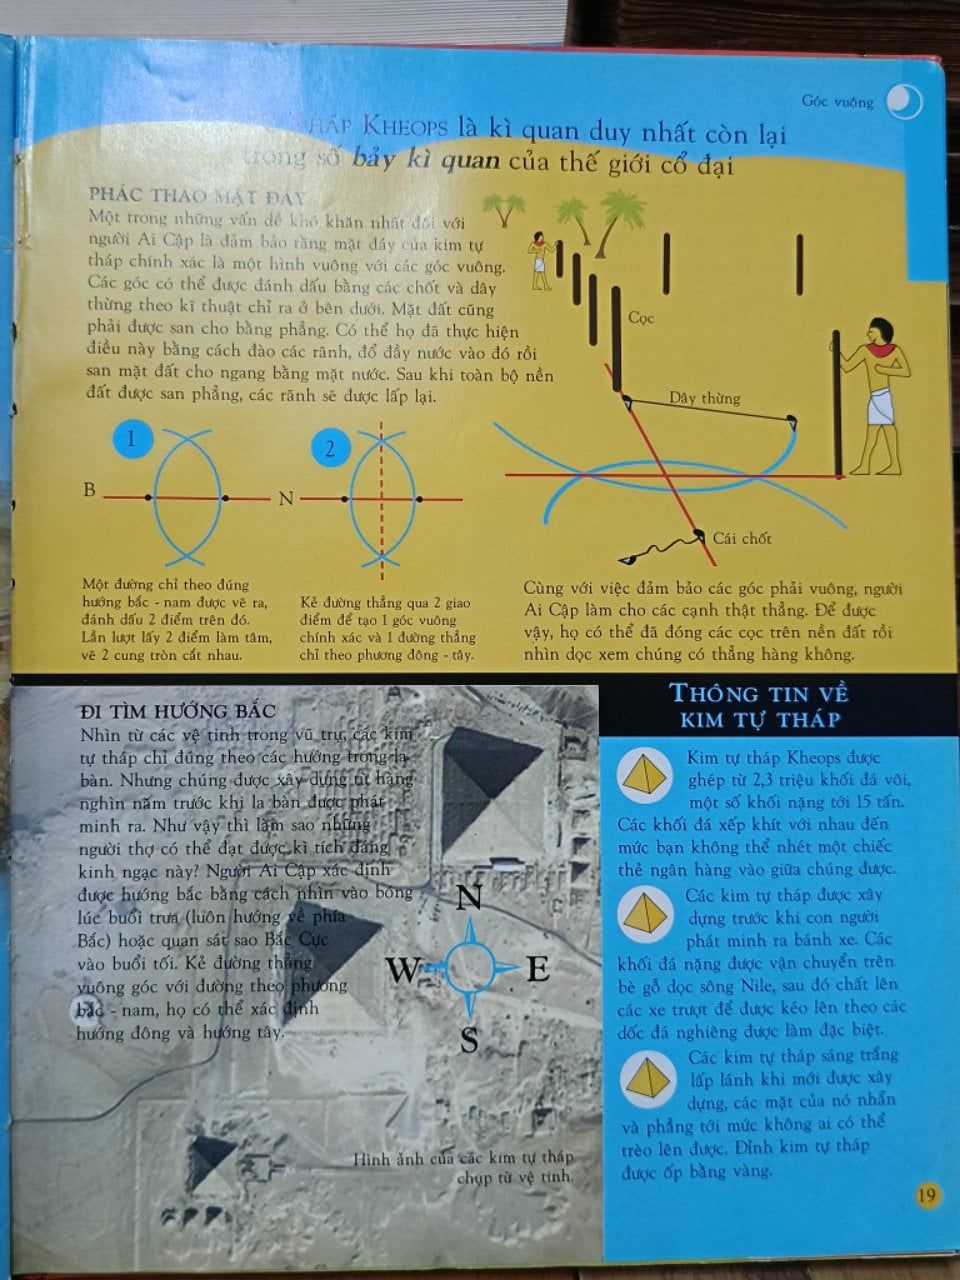 Góc vuông
THÁP KHEOPS là kì quan duy nhất còn lại
trong số bảy kì quan của thế giới cổ đại
PHÁC THẢO MẶT ĐÁY
Một trong những vấn đề khó khăn nhất đối với
người Ai Cập là đảm bảo rằng mặt đáy của kim tự
tháp chính xác là một hình vuông với các góc vuông.
Các góc có thể được đánh dấu bằng các chốt và dây
thừng theo kĩ thuật chỉ ra ở bên dưới. Mặt đất cũng
phải được san cho bằng phẳng. Có thể họ đã thực hiện
điều này bằng cách đào các rãnh, đổ đầy nước vào đó rồi
san mặt đất cho ngang bằng mặt nước. Sau khi toàn bộ nền
đất được san phẳng, các rãnh sẽ được lấp lại.
Cọc
Dây thừng
Cái chốt
1
B
N
2
Một đường chỉ theo đúng
hướng bắc - nam được vẽ ra,
đánh dấu 2 điểm trên đó.
Lần lượt lấy 2 điểm làm tâm,
vẽ 2 cung tròn cắt nhau.
Kẻ đường thẳng qua 2 giao
điểm để tạo 1 góc vuông
chính xác và 1 đường thẳng
chỉ theo phương đông - tây.
Cùng với việc đảm bảo các góc phải vuông, người
Ai Cập làm cho các cạnh thật thẳng. Để được
vậy, họ có thể đã đóng các cọc trên nền đất rồi
nhìn dọc xem chúng có thẳng hàng không.
ĐI TÌM HƯỚNG BẮC
Nhìn từ các vệ tinh trong vũ trụ, các kim
tự tháp chỉ đúng theo các hướng trong la
bàn. Nhưng chúng được xây dựng từ hàng
nghìn năm trước khi la bàn được phát
minh ra. Như vậy thì làm sao những
người thợ có thể đạt được kì tích đáng
kinh ngạc này? Người Ai Cập xác định
được hướng bắc bằng cách nhìn vào bóng
lúc buổi trưa (luôn hướng về phía
Bắc) hoặc quan sát sao Bắc Cực
vào buổi tối. Kẻ đường thẳng
vuông góc với đường theo phương
bắc - nam, họ có thể xác định
hướng đông và hướng tây.
N
W
E
S
Hình ảnh của các kim tự tháp
chụp từ vệ tinh.
THÔNG TIN VỀ
KIM TỰ THÁP
Kim tự tháp Kheops được
ghép từ 2,3 triệu khối đá vôi,
một số khối nặng tới 15 tấn.
Các khối đá xếp khít với nhau đến
mức bạn không thể nhét một chiếc
thẻ ngân hàng vào giữa chúng được.
Các kim tự tháp được xây
dựng trước khi con người
phát minh ra bánh xe. Các
khối đá nặng được vận chuyển trên
bè gỗ dọc sông Nile, sau đó chất lên
các xe trượt để được kéo lên theo các
dốc đá nghiêng được làm đặc biệt.
Các kim tự tháp sáng trắng
lấp lánh khi mới được xây
dựng, các mặt của nó nhẵn
và phẳng tới mức không ai có thể
trèo lên được. Đỉnh kim tự tháp
được ốp bằng vàng.
19